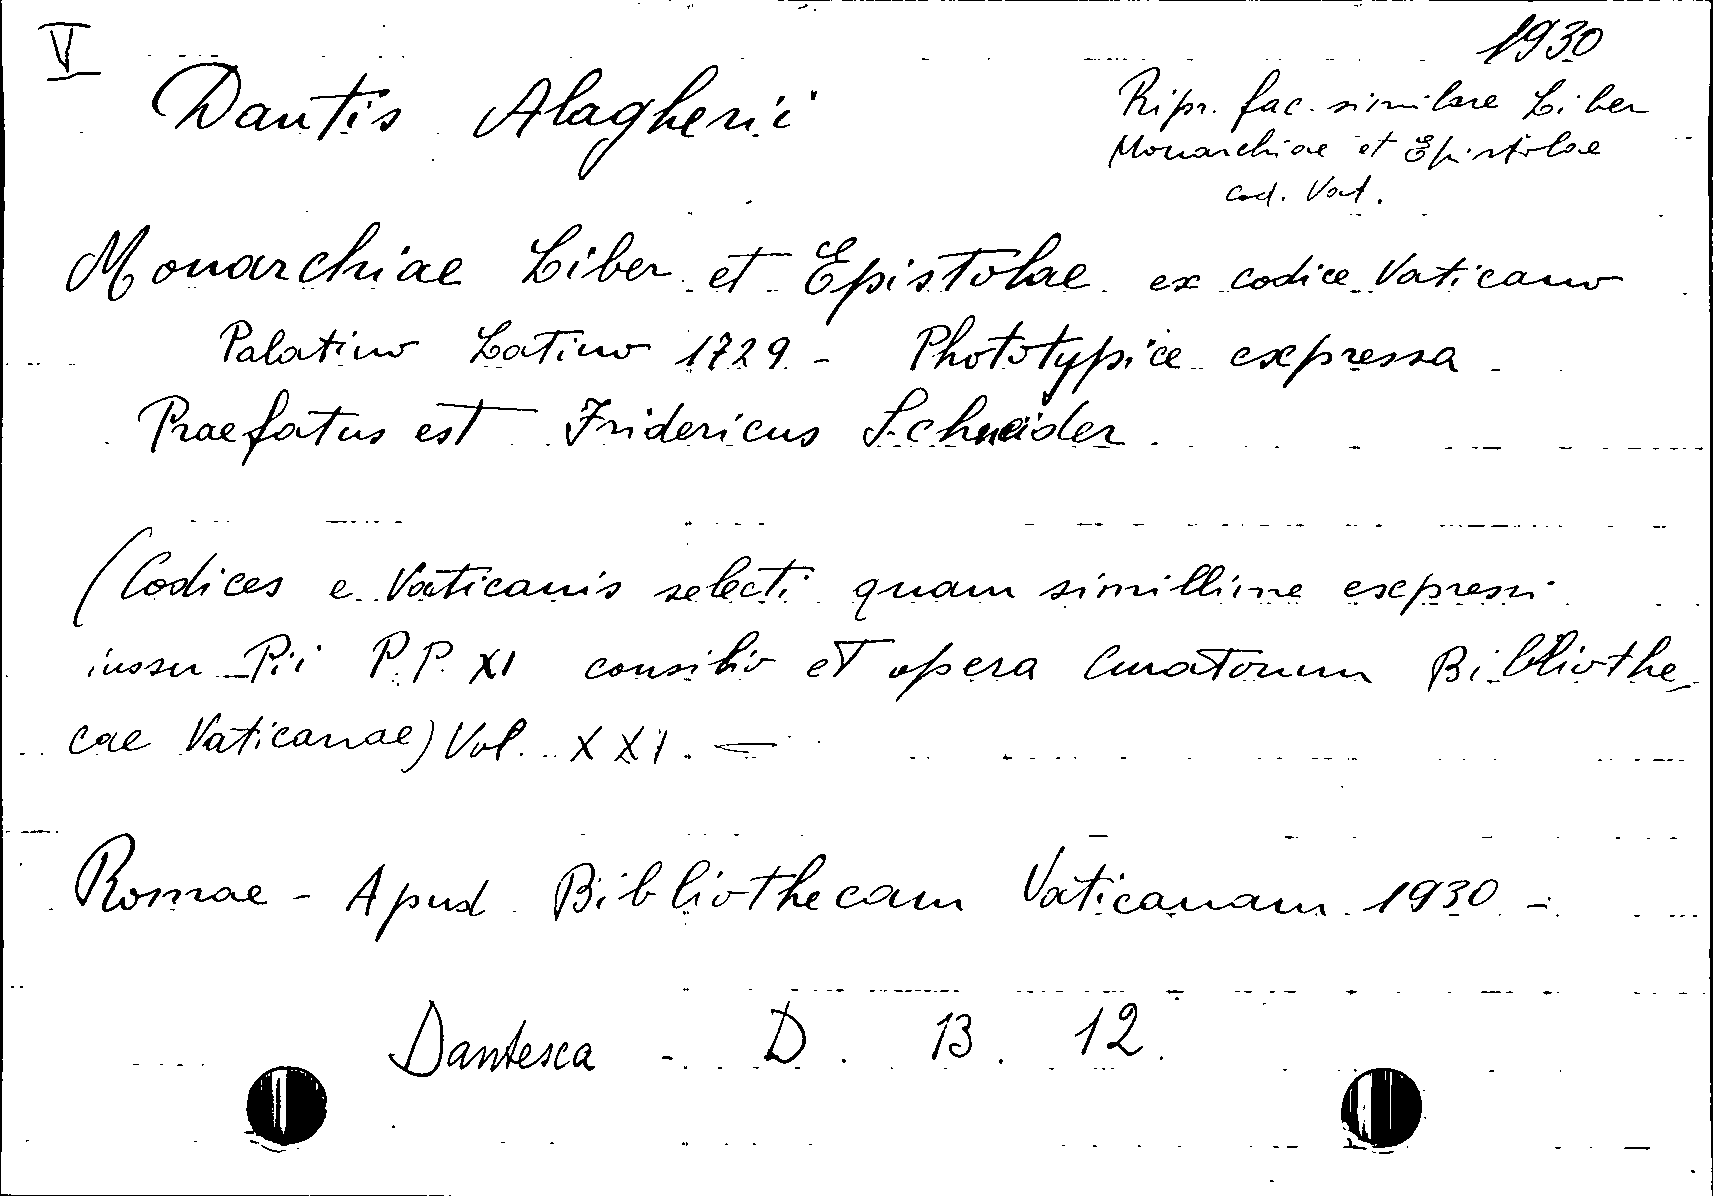 V
1930
Dantis Alagherii
Ripr. fac. similare Liber
Monarchiae et Epistolae
cod. Vat.
Monarchiae Liber et Epistolae ex codice Vaticano
Palatino Latino 1729 - Phototypice expressa
Praefatus est Fridericus Schneider
(Codices e Vaticanis selecti quam simillime expressi
iussu Pii P.P. XI consilio et opera Curatorum Bibliothe
cae Vaticanae) Vol. XXI. =
Romae - Apud Bibliothecam Vaticanam 1930 -
Dantesca - D. 13. 12.